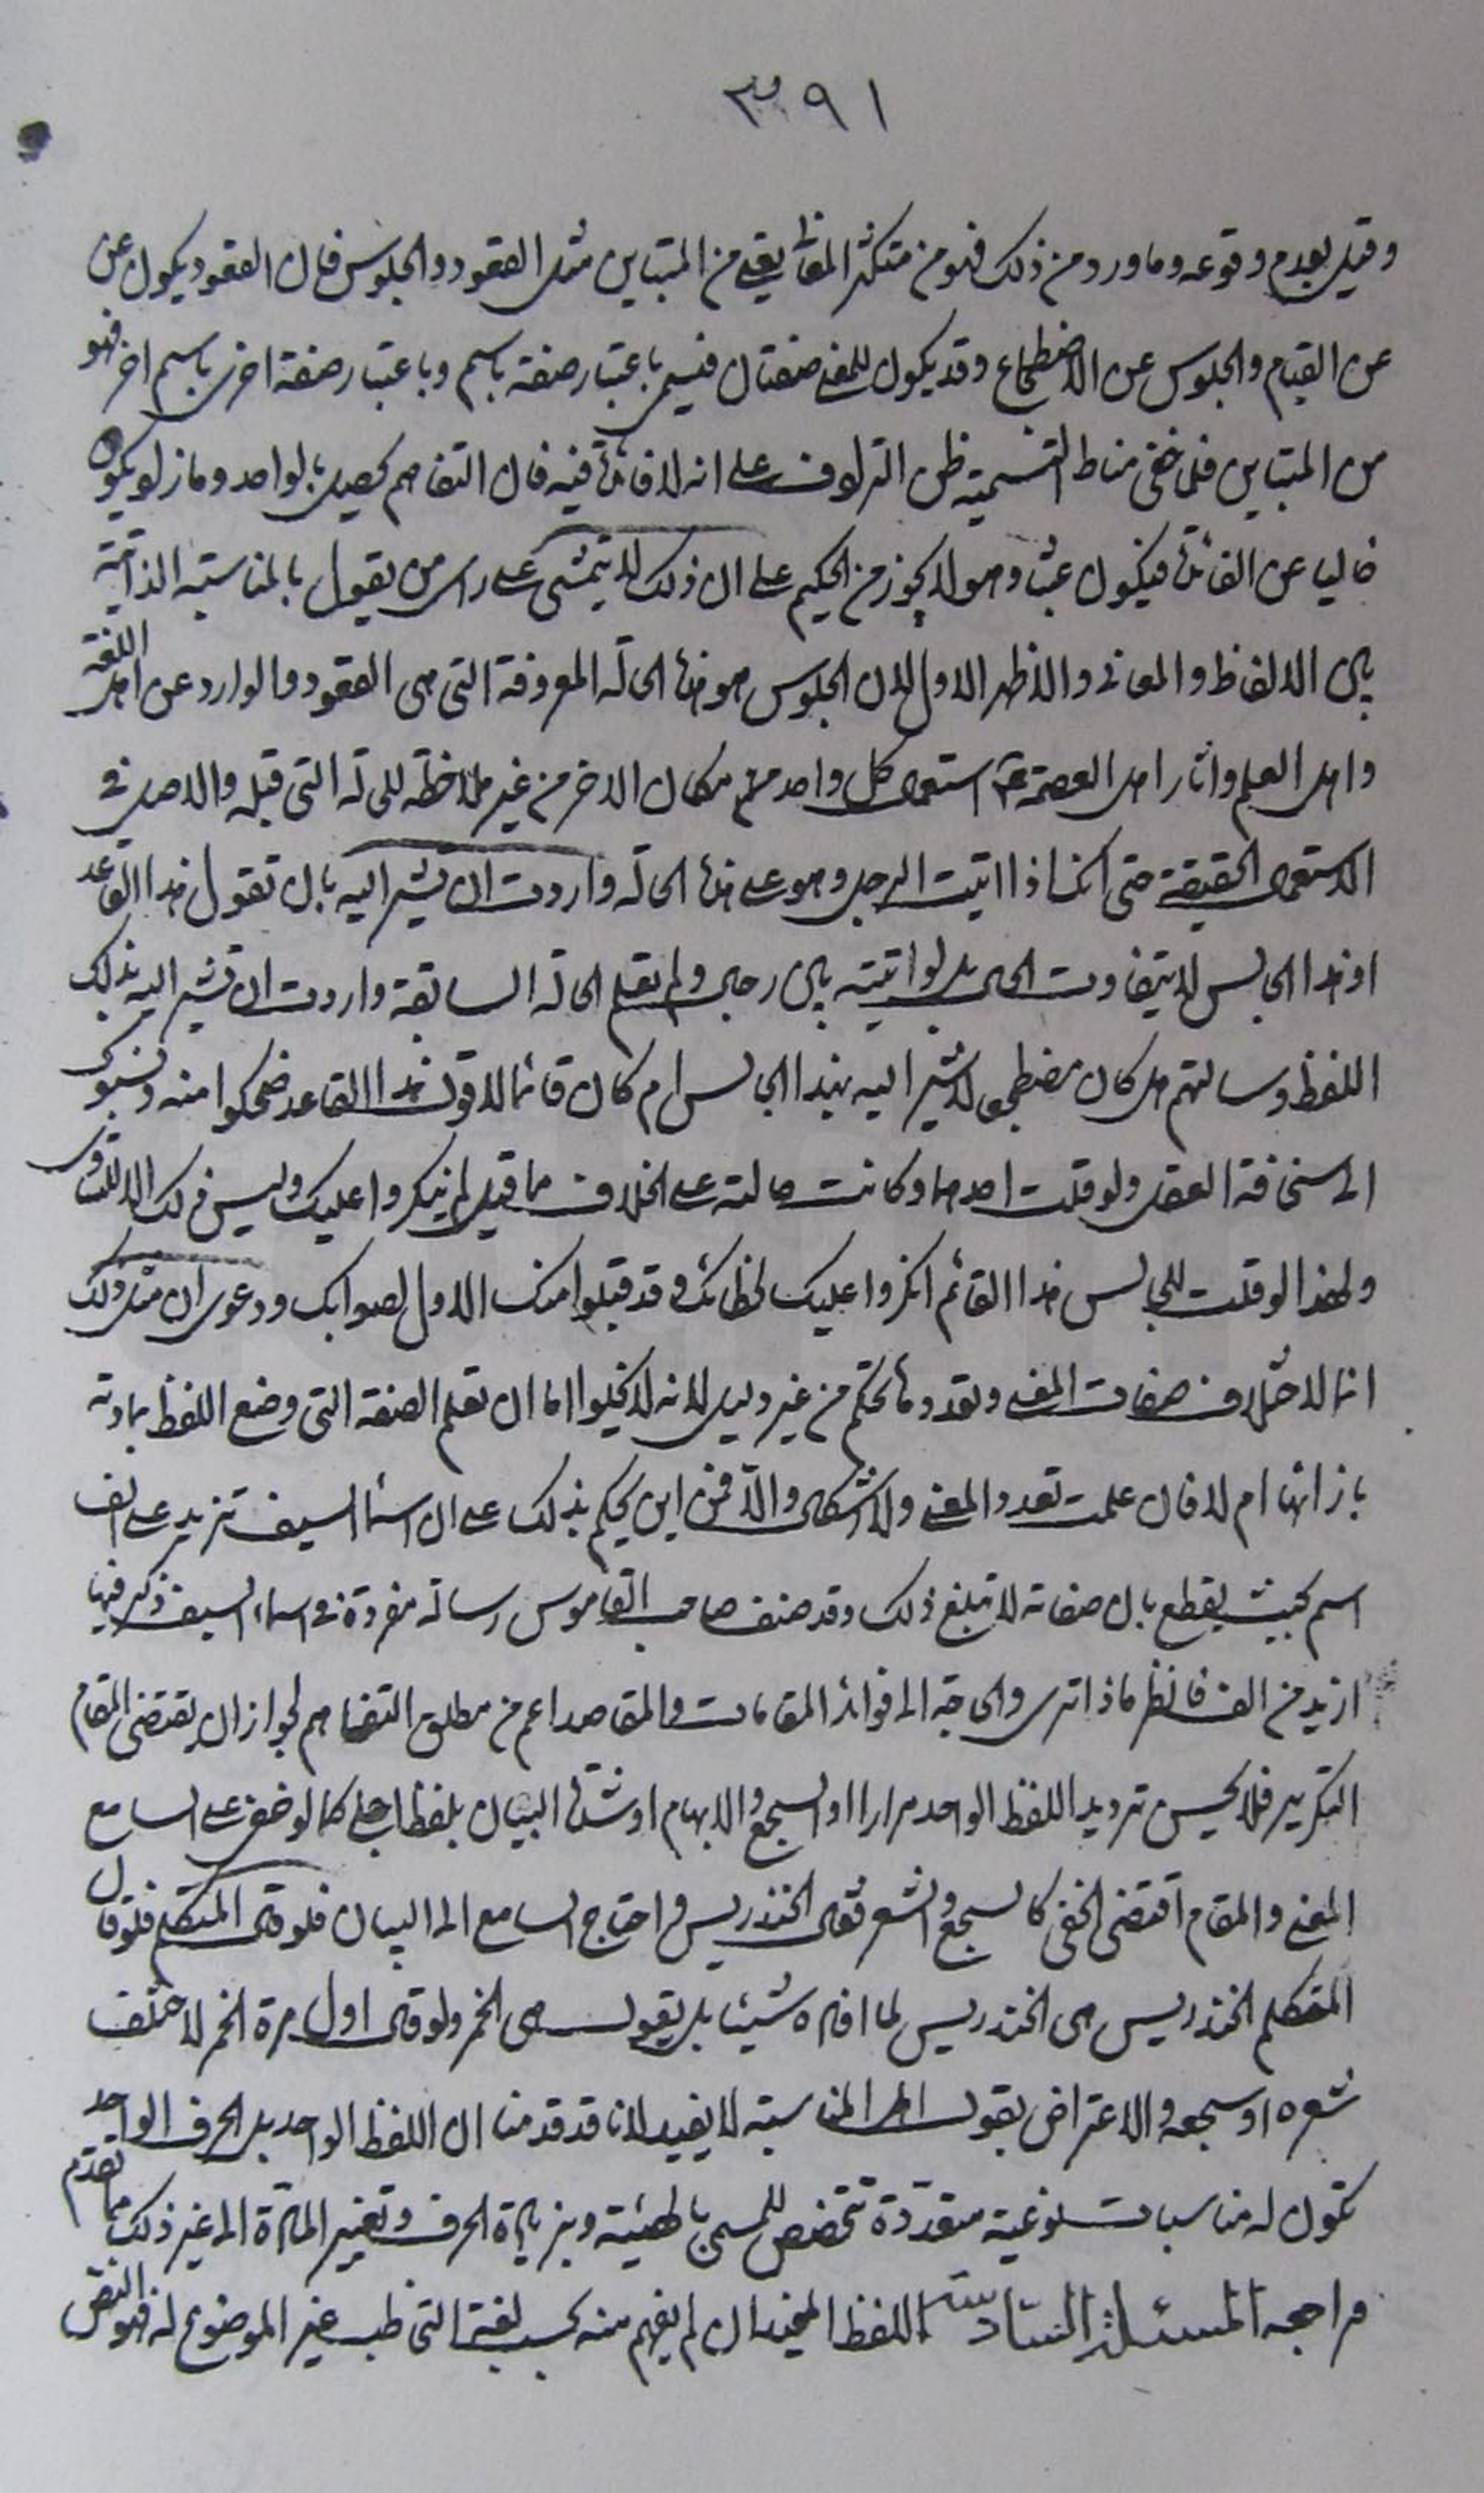 ٣٩١
وقيل بعدم وقوعه وما ورد من ذلك فهو من متكثر المعنى يعنى من المتباين مثل القعود والجلوس فان القعود يكون عن
عن القيام والجلوس عن الاضطجاع وقد يكون للمعنى صفتان فيسمى باعتبار صفة باسم وباعتبار صفة اخرى باسم اخر فهو
من المتباين فلما خفى مناط التسمية ظن الترادف على انه لا فائدة فيه فان التفاهم يحصل بالواحد وما زاد يكون
خاليا عن الفائدة فيكون عبثا وهو لا يجوز من الحكيم على ان ذلك لا يتمشى على راى من يقول بالمناسبة الذاتية
بين الالفاظ والمعانى والاظهر الاول لان الجلوس هو هذه الحالة المعروفة التى هى القعود والوارد عن اهل اللغة
واهل العلم واثار اهل العصمة ع استعمال كل واحد منهم مكان الاخر من غير ملاحظة للحالة التى قبله والاصل فى
الاستعمال الحقيقة حتى انك اذا اتيت الرجل وهو على هذه الحالة واردت ان تشير اليه بان تقول هذا القاعد
او هذا الجالس لا يتفاوت الحال بل لو اتيته بين رجال ولم تعلم الحالة السابقة واردت ان تشير اليه بذلك
اللفظ وسالتهم هل كان مضطجعا لاشير اليه بهذا الجالس ام كان قائما لاقول هذا القاعد ضحكوا منه ونسبوك
الى سخافة العقل ولو قلت احدهما وكانت حالته على خلاف ما قيل لم ينكروا عليك وليس ذلك الا للتساوى
ولهذا لو قلت للجالس هذا القائم انكروا عليك لخطائك وقد قبلوا منك الاول لصوابك ودعوى ان مثل ذلك
انما لاختلاف صفات المعنى وتعددها تحكم من غير دليل لانه لا يخلو اما ان تعلم الصفة التى وضع اللفظ بمادته
بازائها ام لا فان علمت تعدد المعنى ولا اشكال والا فمن اين يحكم بذلك على ان اسماء السيف تزيد على الف
اسم بحيث يقطع بان صفاته لا تبلغ ذلك وقد صنف صاحب القاموس رسالة مفردة فى اسماء السيف ذكر فيها
ازيد من الف فانظر ماذا ترى والحاجة الى فوائد المقامات والمقاصد اعم من مطلق التفاهم لجواز ان يقتضى المقام
التكرير فلا يحسن ترديد اللفظ الواحد مرارا او السجع والابهام او شدة البيان بلفظ اجلى كما لو خفى على السامع
المعنى والمقام اقتضى الخفى كالسجع والشعر فقال الخندريس واحتاج السامع الى البيان فلو قال المتكلم فلو قال
المتكلم الخندريس هى الخندريس لما افاده شيئا بل يقول هى الخمر ولو قال اول مرة الخمر لاختلف
شعره او سجعه والاعتراض بقول اهل المناسبة لا يفيد لانا قد قدمنا ان اللفظ الواحد بل الحرف الواحد
تكون له مناسبات نوعية متعددة تتخصص للمسمى بالهيئة وبزيادة الحرف وتغيير المادة الى غير ذلك مما تقدم
فراجعه المسئلة السادسة اللفظ المفيد ان لم يفهم منه بحسب لغته التى خاطب غير الموضوع له فهو النص